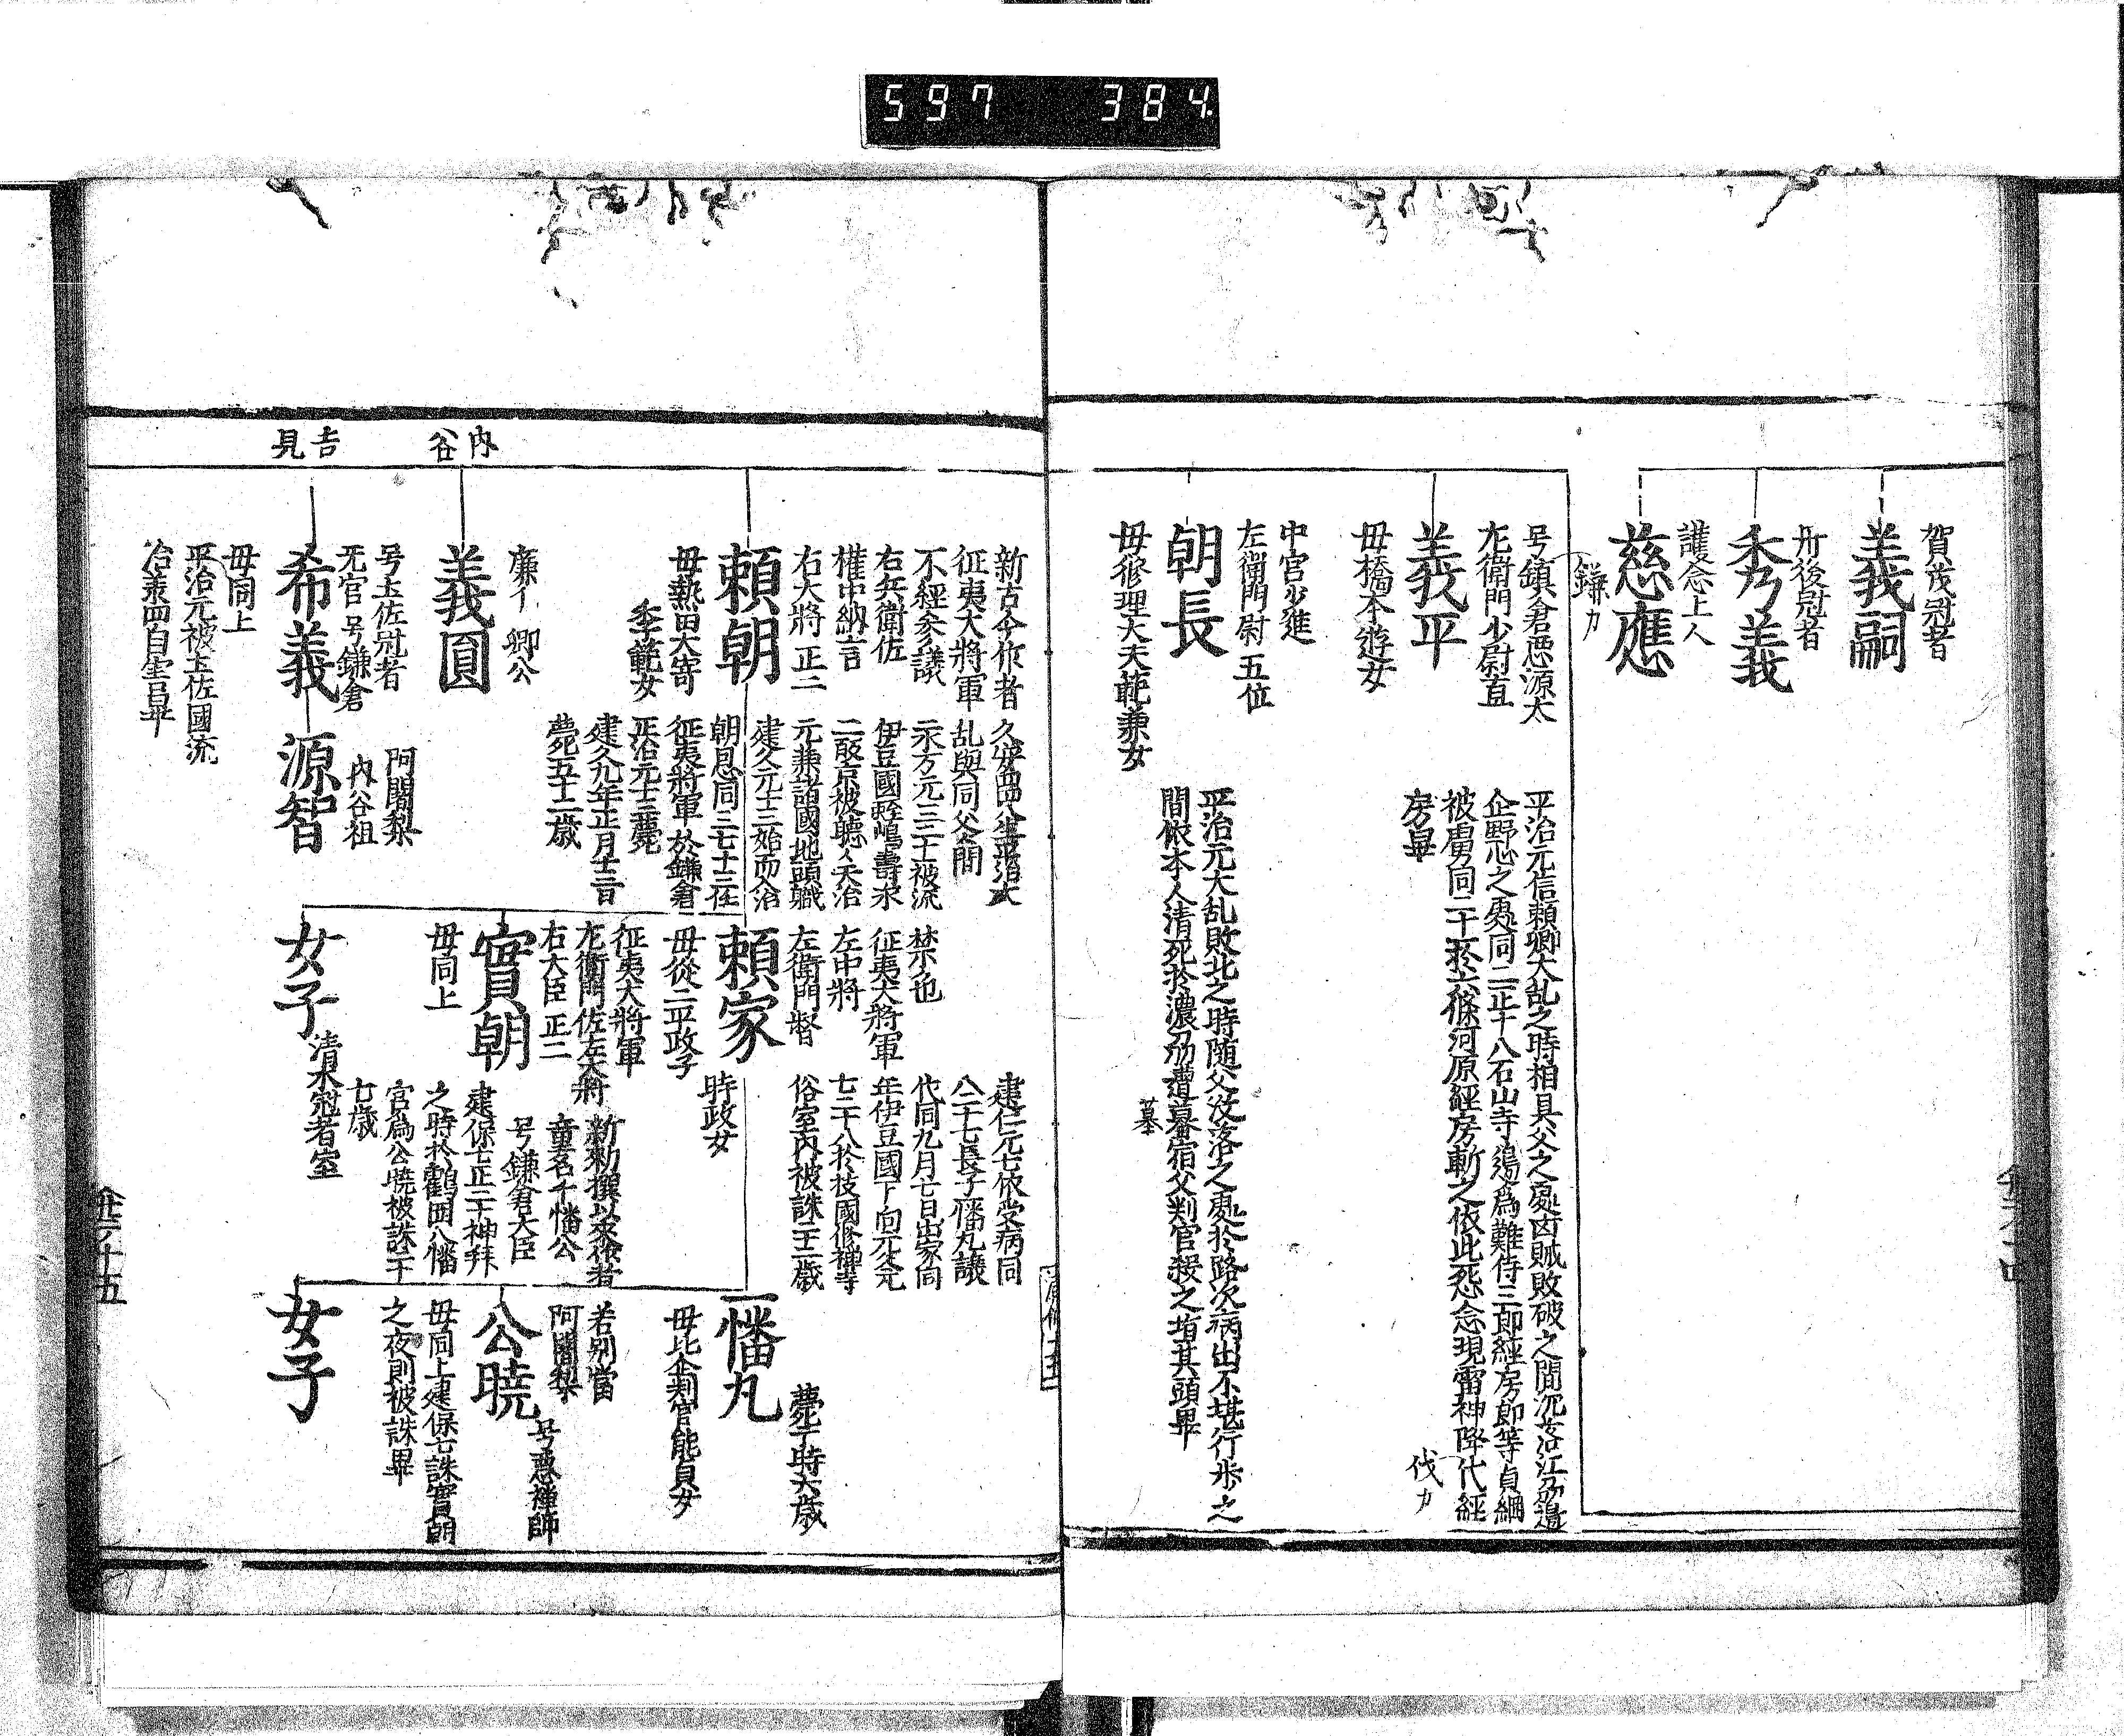 597 384
賀茂冠者
義嗣
丹後冠者
秀義
護念上人
慈應
鎌カ
号鎮倉悪源太
左衛門少尉直
義平
母橋本遊女
平治元信頼卿大乱之時相具父之處凶賊敗破之間沉落江刕邉
企野心之處同二正十八石山寺邉為難侍三郎経房郎等貞綱
被虜同二十於六條河原経房斬之依此怨念現雷神降代経
房畢
伐カ
中宮少進
左衛門尉 五位
朝長
母修理大夫範兼女
平治元大乱敗北之時随父没落之處於路次病出不堪行歩之
間依本人清死於濃刕遭暮宿父判官殺之埴其頭畢
墓
内谷
吉見
新古今作者
征夷大将軍
不経参議
右兵衛佐
權中納言
右大将 正二
頼朝
母熱田大寄
季範女
乱與同父間
伊豆國蛭嶋壽永
元兼諸國地頭職
建久元十三始而洛
朝恩同三七十三任
征夷将軍於鎌倉
正治元十三薨
建久九年正月十三日
薨五十二歳
禁少也
征夷大将軍
左中将
左衛門督
頼家
母從二平政子
時政女
建仁元七依受病同
八二十七長子一幡丸譲
代同九月七日出家同
年伊豆國下向元久元
七二十八於技國修禅寺
俗室内被誅二十三歳
薨于時六歳
一幡丸
母比企判官能員女
征夷大将軍
左衛門佐左大将
右大臣 正二
實朝
母同上
新勅撰以来作者
童名千幡公
号鎌倉大臣
建保七正二十神拜
之時於鶴岡八幡
宮為公暁被誅二十
七歳
若別當
阿闍梨
号悪禅師
公暁
母同上建保七誅實朝
之夜則被誅畢
女子
清水冠者室
女子
卿公
義圓
号土佐冠者
无官号鎌倉
希義
母同上
平治元被土佐國流
阿闍梨
内谷祖
源智